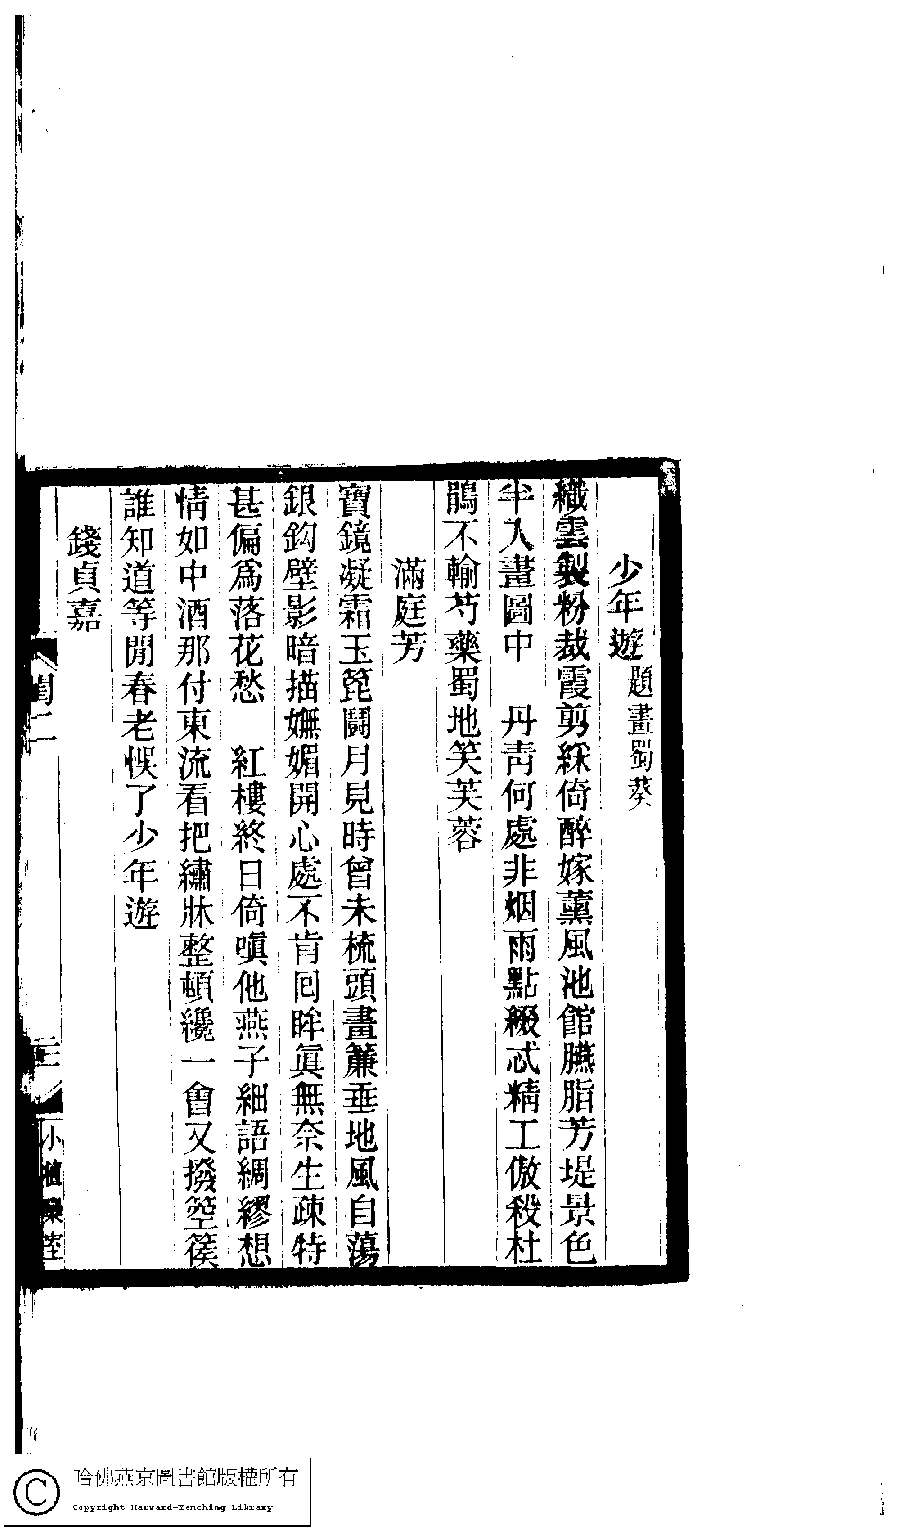 少年遊題畫蜀葵
織雲製粉裁霞剪綵倚醉嫁薰風池館臙脂芳堤景色
半入畫圖中　丹青何處非烟雨點綴忒精工傲殺杜
鵑不輸芍藥蜀地笑芙蓉
滿庭芳
寶鏡凝霜玉箆鬭月見時曾未梳頭畫簾垂地風自蕩
銀鈎壁影暗描嫵媚開心處不肯囘眸眞無奈生疎特
甚偏爲落花愁　紅樓終日倚嗔他燕子細語綢繆想
情如中酒那付東流看把繡牀整頓纔一會又撥箜篌
誰知道等閒春老悞了少年遊
錢貞嘉
閨二
三
小檀欒室
哈佛燕京圖書館版權所有
Copyright Harvard-Yenching Library